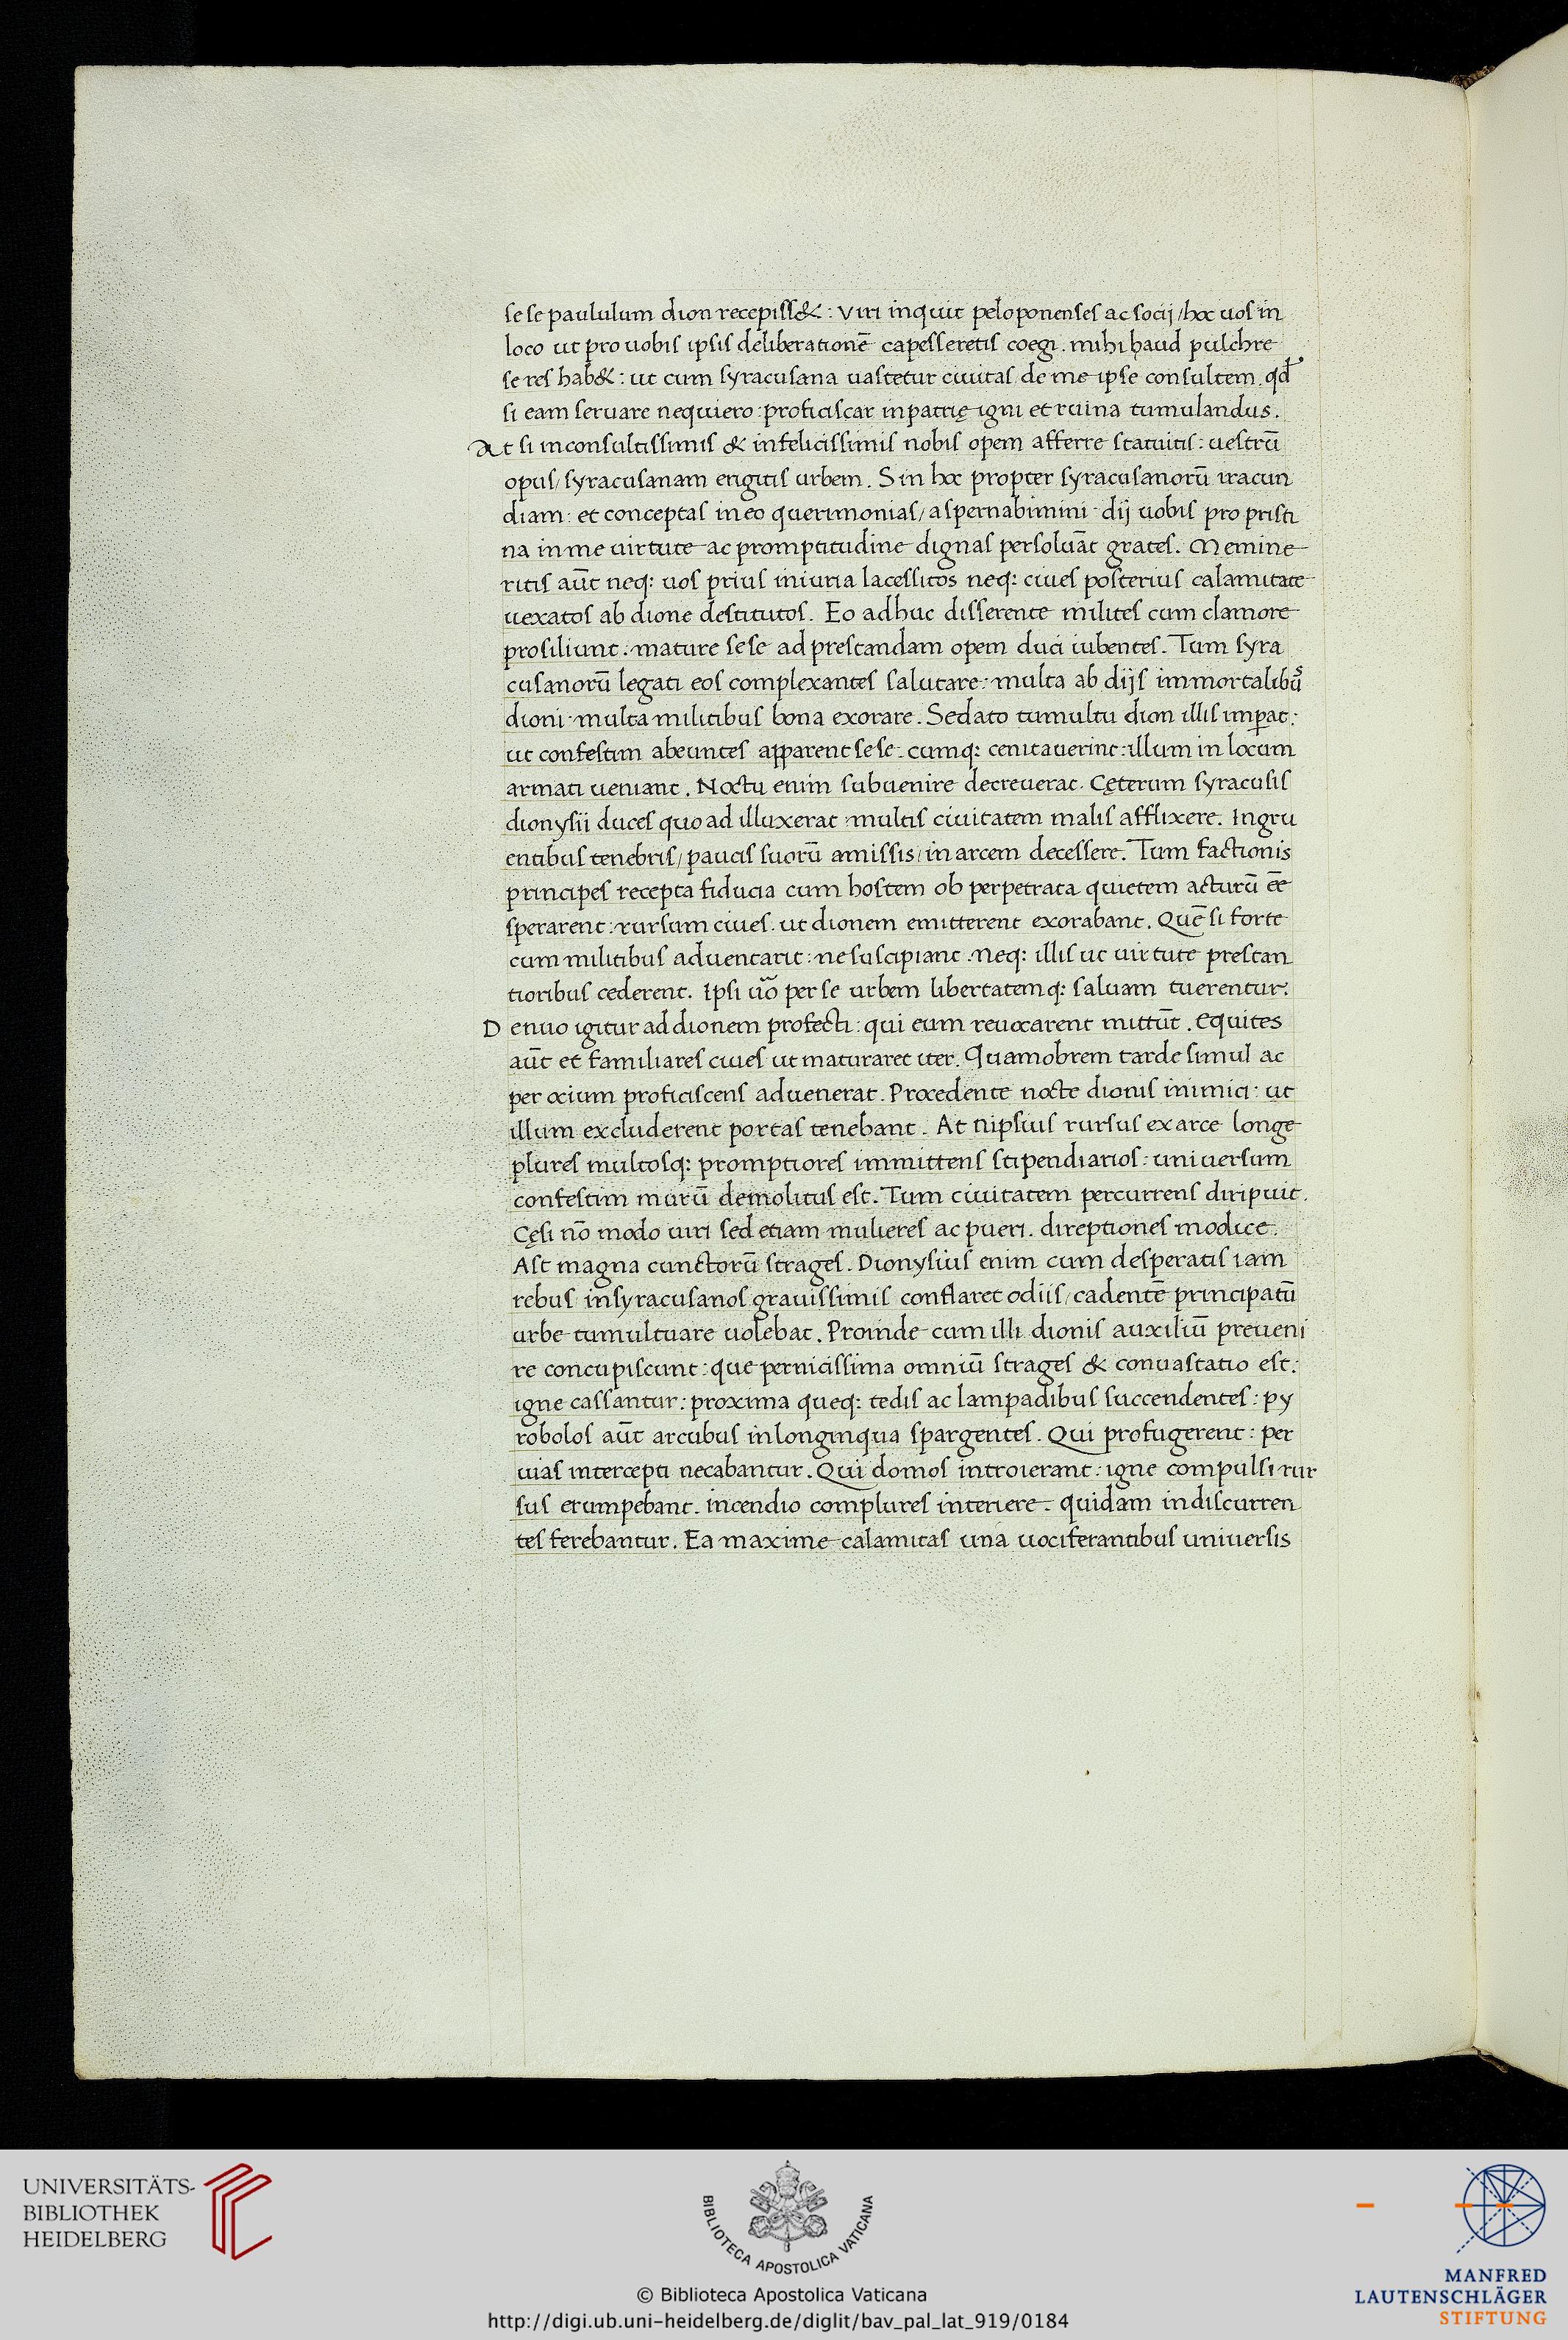 sese paululum dion recepiss&: Viri inquit peloponenses ac socij / hoc uos in
loco ut pro uobis ipsis deliberationē capesseretis coegi. mihi haud pulchre
se res hab&: ut cum syracusana uastetur ciuitas de me ipse consultem. qđ
si eam seruare nequiero: proficiscar in patrię igni et ruina tumulandus.
At si inconsultissimis & infelicissimis nobis opem afferre statuitis: uestrū
opus / syracusanam erigitis urbem. Sin hoc propter syracusanorū iracun
diam: et conceptas in eo querimonias / aspernabimini· dij uobis pro pristi
na in me uirtute ac promptitudine dignas persoluāt grates. Memine
ritis aūt neq: uos prius iniuria lacessitos neq: ciues posterius calamitate
uexatos ab dione destitutos. Eo adhuc disserente milites cum clamore
prosiliunt. mature sese ad prestandam opem duci iubentes. Tum syra
cusanorū legati eos complexantes salutare: multa ab dijs immortalibꝰ
dioni· multa militibus bona exorare. Sedato tumultu dion illis imꝑat:
ut confestim abeuntes apparent sese. cumq: cenitauerint: illum in locum
armati ueniant. Noctu enim subuenire decreuerat. Cęterum syracusis
dionysii duces quoad illuxerat multis ciuitatem malis afflixere. Ingru
entibus tenebris / paucis suorū amissis / in arcem decessere. Tum factionis
principes recepta fiducia cum hostem ob perpetrata quietem acturū eē
sperarent: rursum ciues. ut dionem emitterent exorabant. Quē si forte
cum militibus aduentarit: ne suscipiant. Neq: illis ut uirtute prestan
tioribus cederent. Ipsi uō per se urbem libertatemq: saluam tuerentur.
Denuo igitur ad dionem profecti: qui eum reuocarent mittūt. equites
aūt et familiares ciues ut maturaret iter. Quamobrem tarde simul ac
per ocium proficiscens aduenerat. Procedente nocte dionis inimici: ut
illum excluderent portas tenebant. At nipsius rursus ex arce longe
plures multosq: promptiores immittens stipendiarios: uniuersum
confestim murū demolitus est. Tum ciuitatem percurrens diripuit.
Cęsi nō modo uiri sed etiam mulieres ac pueri. direptiones modice.
Ast magna cunctorū strages. Dionysius enim cum desperatis iam
rebus in syracusanos grauissimis conflaret odiis / cadentē principatū
urbe tumultuare uolebat. Proinde cum illi dionis auxiliū preueni
re concupiscunt: que pernicissima omniū strages & conuastatio est:
igne cassantur: proxima queq: tedis ac lampadibus succendentes: py
robolos aūt arcubus in longinqua spargentes. Qui profugerent: per
uias intercepti necabantur. Qui domos introierant: igne compulsi rur
sus erumpebant. incendio complures interiere. quidam in discurren
tes ferebantur. Ea maxime calamitas una uociferantibus uniuersis
UNIVERSITÄTS-
BIBLIOTHEK
HEIDELBERG
BIBLIOTECA APOSTOLICA VATICANA
© Biblioteca Apostolica Vaticana
http://digi.ub.uni-heidelberg.de/diglit/bav_pal_lat_919/0184
MANFRED
LAUTENSCHLÄGER
STIFTUNG